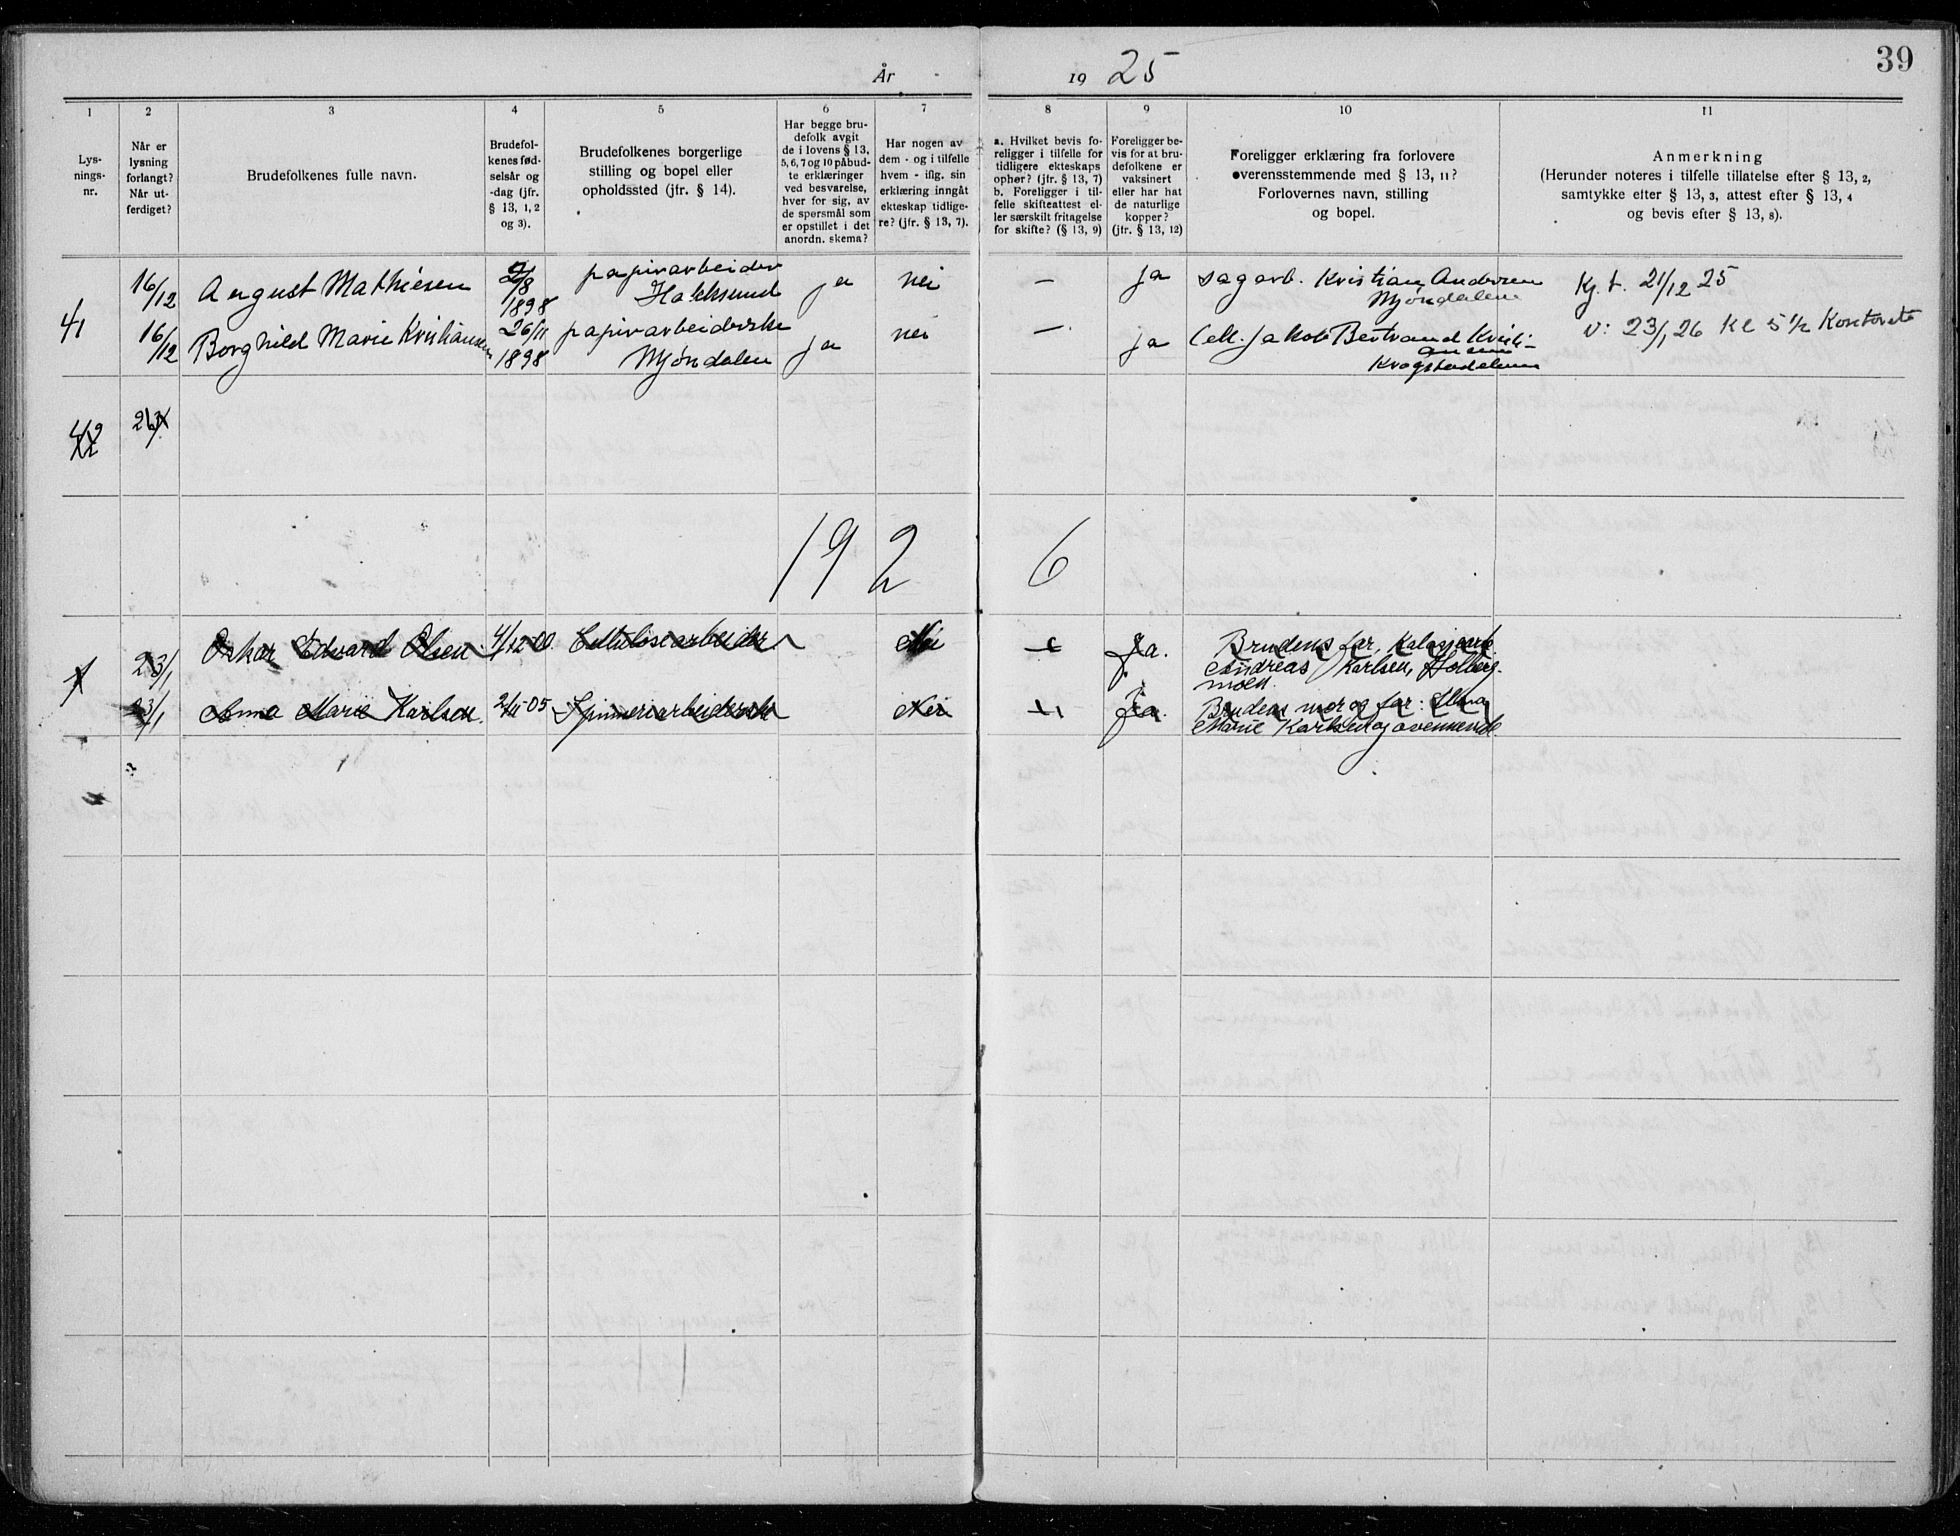 År 19 25
39
1 2 3 4 5 6 7 8 9 10 11
Lys-
nings-
nr.
Når er
lysning
forlangt?
Når ut-
ferdiget?
Brudefolkenes fulle navn.
Brudefol-
kenes fød-
selsår og
-dag (jfr.
§ 13, 1, 2
og 3).
Brudefolkenes borgerlige
stilling og bopel eller
opholdssted (jfr. § 14).
Har begge bru-
defolk avgit
de i lovens § 13,
5, 6, 7 og 10 påbud-
te erklæringer
ved besvarelse,
hver for sig, av
de spørsmål som
er opstillet i det
anordn. skema?
Har nogen av
dem - og i tilfelle
hvem - iflg. sin
erklæring inngått
ekteskap tidlige-
re? (jfr. § 13, 7).
a. Hvilket bevis fo-
religger i tilfelle for
tidligere ekteskaps
ophør? (jfr. § 13, 7)
b. Foreligger i til-
felle skifteattest el-
ler særskilt fritagelse
for skifte? (§ 13, 9)
Foreligger be-
vis for at bru-
defolkene er
vaksinert
eller har hat
de naturlige
kopper?
(jfr. § 13, 12)
Foreligger erklæring fra forlovere
overensstemmende med § 13, 11?
Forlovernes navn, stilling
og bopel.
Anmerkning
(Herunder noteres i tilfelle tillatelse efter § 13, 2,
samtykke efter § 13, 3, attest efter § 13, 4
og bevis efter § 13, 8).
41
16/12 August Mathiesen 2/8 1898 papirarbeider Hokksund ja nei — ja sagarb. Kristian Andersen Mjøndalen Kj. t. 21/12 25
16/12 Borghild Marie Kristiansen 26/11 1898 papirarbeiderske Mjøndalen ja nei — ja Cell. Jakob Bertrand Kristi-
ansen
Krogstadelven
V: 23/1 26 Kl 5 1/2 Kontoret
42
192 6
1 23/1 Oskar Edvard Olsen 4/12-00 Cellulosearbeider Nei — Ja. Brudens far,
Andreas Karlsen, Solberg-
moen.
23/1 Anna Marie Karlsen. 2/11-05 Spinneriarbeiderske Nei — Ja. Brudens mor og far:
Marie Karlsen og ovennevnte